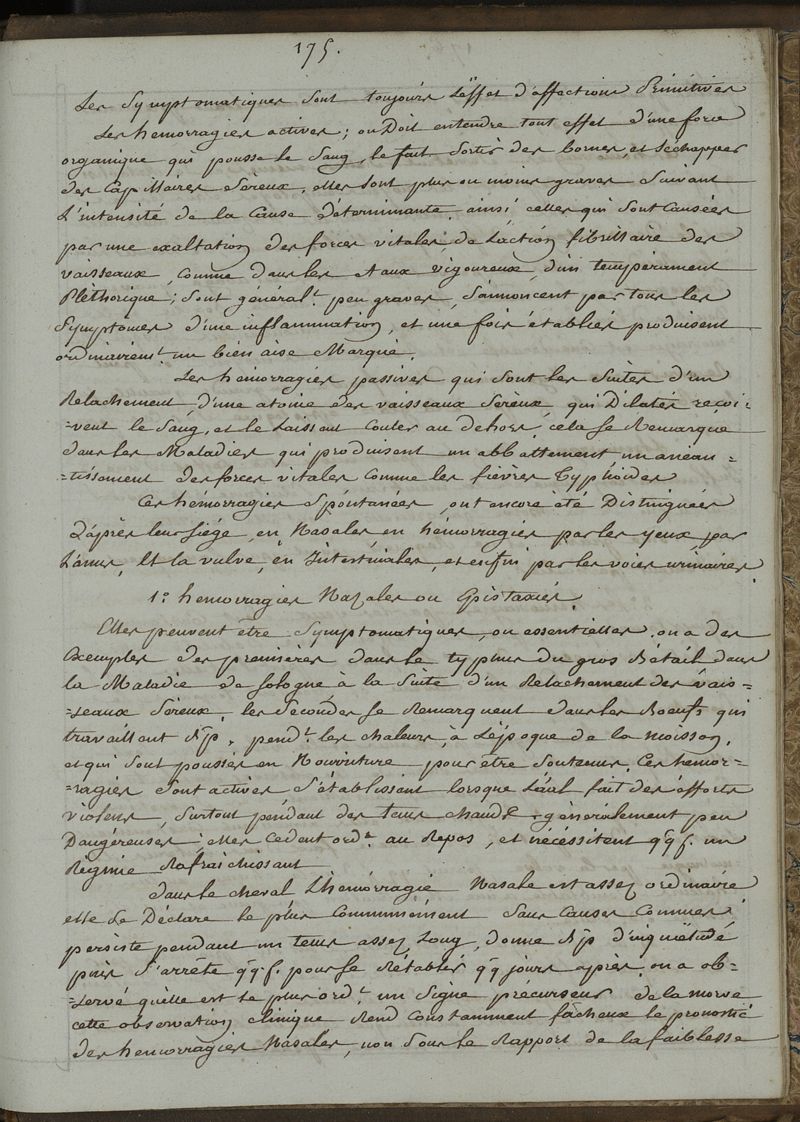 175.
Les Symptomatiques sont toujours L'éffet d'affections Primitives
Les hémorragies actives; on Doit entendre tout effet d'une force
organique qui pousse le Sang, le fait Sortir des bornes, et s'echapper
des Capillaires Séreux, elles sont plus ou moins graves Suivant
L'intensité de la Cause déterminante, ainsi celles qui sont Causées
par une exaltation des forces vitales de L'action fibrillaire des
vaisseaux, comme dans les vigoureux, d'un tempérament
Pléthorique; sont général.t peu graves, s'annoncent par tous les
Symptomes d'une inflammation, et une fois établies produisent
ordinairem.t un bien aise Marqué.
Les hémorragies passives qui sont les Suites d'un
Relachement d'une atonie des vaisseaux Séreux, qui Dilatés reçoi-
-vent le Sang, et le laissent couler au dehors, cela se Remarque
dans les Maladies qui produisent un abbattement un anéan-
-tissement des forces vitales Comme les fièvres Typhoides
Ces hémorragies Spontanées, ont encore été Distinguées
D'après leur Siége, en Nasales, en hémorragies par les yeux par
L'anus, et la vulve, en Intestinales, et enfin par les voies urinaires
1.o hemorragies Nazales ou Epistaxis.
Elles peuvent être Symptomatiques, ou essentielles, on a des
Exemples des premières dans le typhus du gros Bétail dans
la Maladie de sologne à la Suite d'un Relachement des vais-
-seaux Séreux, les Secondes se Remarquent dans les Boeufs qui
travaillent pend.t les chaleurs, à L'époque de la moisson,
et qui sont poussés en Nourriture pour être Soutenus. Ces hémor-
-ragies sont actives S'établissent lorsque L'aal fait des éfforts
violens, Surtout pendant des tems chauds, généralement peu
Dangéreuses; elles Cedent ord.t au Repos, et nécéssitent qq f. un
Régime Rafraichissant
dans le cheval L'hémorragie Nasale est assez ordinaire
elle se Déclare le plus Communément Sans Causes Connues,
persiste pendant un tems assez Long, donne d'inquiétude
puis S'arrête qq f. pour se Rétablir qq jours après, on a ob-
-servé qu'elle est le plus ord.t un Signe précurseur de la morve
cette observation clinique Rend Constamment fâcheux le pronostic
des hemorragies Nasales, non Sous le Rapport de la faiblesse